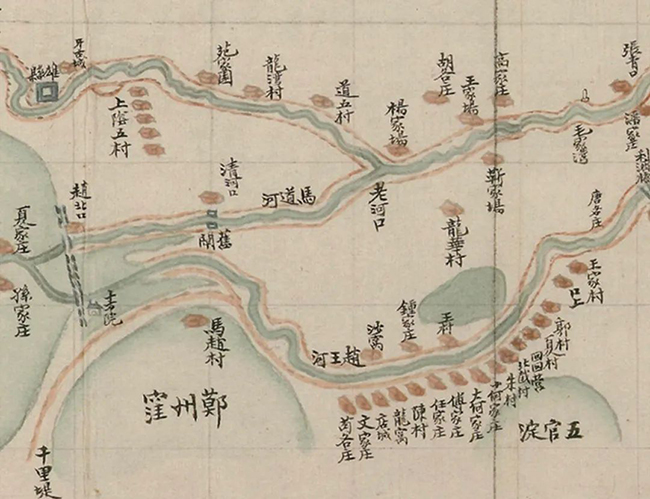 雄縣
牙古城
范家圈
龍灣村
道五村
楊家場
胡各庄
王家場
高家庄
張青口
潘家庄
毛家灣
上陸五村
清河口
馬道河
老河口
靳家場
龍華村
唐各庄
王家村
趙北口
舊閘
夏家庄
孫家庄
馬趙村
鄭州窪
千里堤
趙王河
沙窩
鍾家庄
王村
苟各庄
文家庄
店城
龍窩
陳村
任家庄
傅家庄
大何家庄
小何家庄
朱村
郭村
五官淀